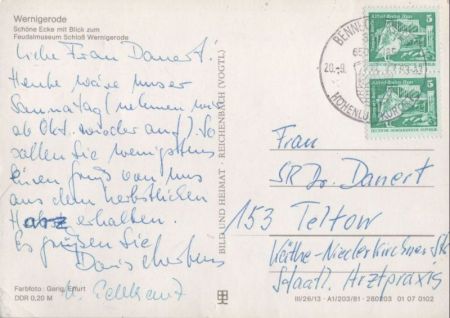 Wernigerode
Schöne Ecke mit Blick zum
Feudalmuseum Schloß Wernigerode
Liebe Frau Danert!
Heute wäre unser
Saunatag (nehmen wir
ab Okt. wieder auf). So
sollen Sie wenigstens
einen Gruß von uns
aus dem herbstlichen
Harz erhalten.
Es grüßen Sie
Doris
u.
Farbfoto: Garig, Erfurt
DDR 0,20 M
BILD UND HEIMAT · REICHENBACH (VOGTL)
5
5
Frau
SR Dr. Danert
153 Teltow
Käthe-Niederkirchner-Str.
Staatl. Arztpraxis
III/26/13 A1/203/81 01 07 0102